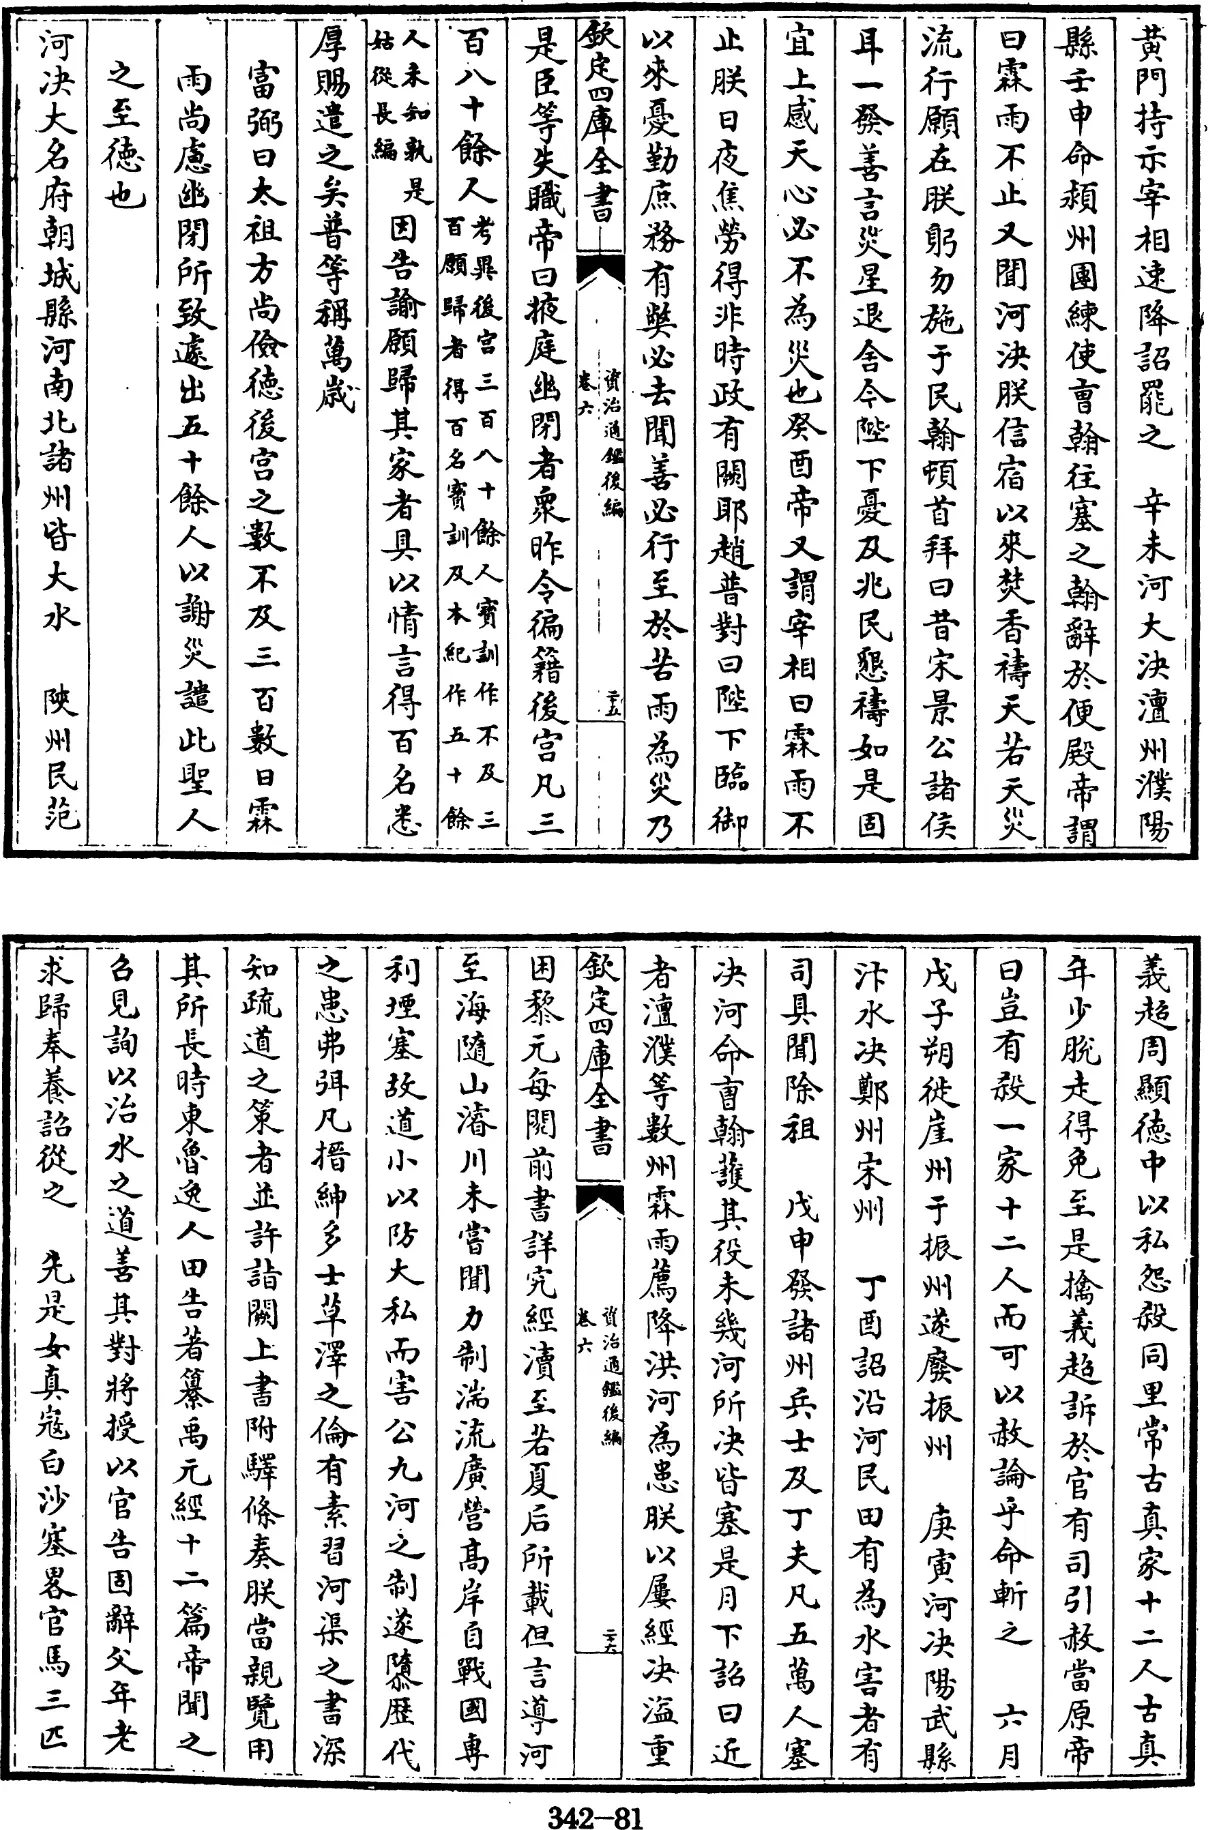 黄門持示宰相速降詔罷之　辛未河大決澶州濮陽
縣壬申命潁州團練使曹翰往塞之翰辭於便殿帝謂
曰霖雨不止又聞河決朕信宿以來焚香禱天若天災
流行願在朕躬勿施于民翰頓首拜曰昔宋景公諸侯
耳一發善言災星退舍今陛下憂及兆民懇禱如是固
宜上感天心必不為災也癸酉帝又謂宰相曰霖雨不
止朕日夜焦勞得非時政有闕耶趙普對曰陛下臨御
以來憂勤庶務有獘必去聞善必行至於苦雨為災乃
欽定四庫全書
資治通鑑後編
卷六
二十五
是臣等失職帝曰掖庭幽閉者衆昨令徧籍後宫凡三
百八十餘人
考異後宫三百八十餘人寳訓作不及三
百願歸者得百名寳訓及本紀作五十餘
人未知孰是
姑從長編
因告諭願歸其家者具以情言得百名悉
厚賜遣之矣普等稱萬歲
富弼曰太祖方尚儉德後宫之數不及三百數日霖
雨尚慮幽閉所致遽出五十餘人以謝災譴此聖人
之至徳也
河決大名府朝城縣河南北諸州皆大水　陜州民范
義超周顯徳中以私怨殺同里常古真家十二人古真
年少脱走得免至是擒義超訴於官有司引赦當原帝
曰豈有殺一家十二人而可以赦論乎命斬之　六月
戊子朔徙崖州于振州遂廢振州　庚寅河決陽武縣
汴水決鄭州宋州　丁酉詔沿河民田有為水害者有
司具聞除租　戊申發諸州兵士及丁夫凡五萬人塞
決河命曹翰護其役未幾河所決皆塞是月下詔曰近
者澶濮等數州霖雨薦降洪河為患朕以屢經決溢重
欽定四庫全書
資治通鑑後編
卷六
二十六
困黎元每閱前書詳究經瀆至若夏后所載但言導河
至海隨山濬川未嘗聞力制湍流廣營髙岸自戰國專
利堙塞故道小以防大私而害公九河之制遂隳歴代
之患弗弭凡搢紳多士草澤之倫有素習河渠之書深
知疏道之策者並許詣闕上書附驛條奏朕當親覽用
其所長時東魯逸人田告著纂禹元經十二篇帝聞之
召見詢以治水之道善其對將授以官告固辭父年老
求歸奉養詔從之　先是女真寇白沙寨畧官馬三匹
342-81